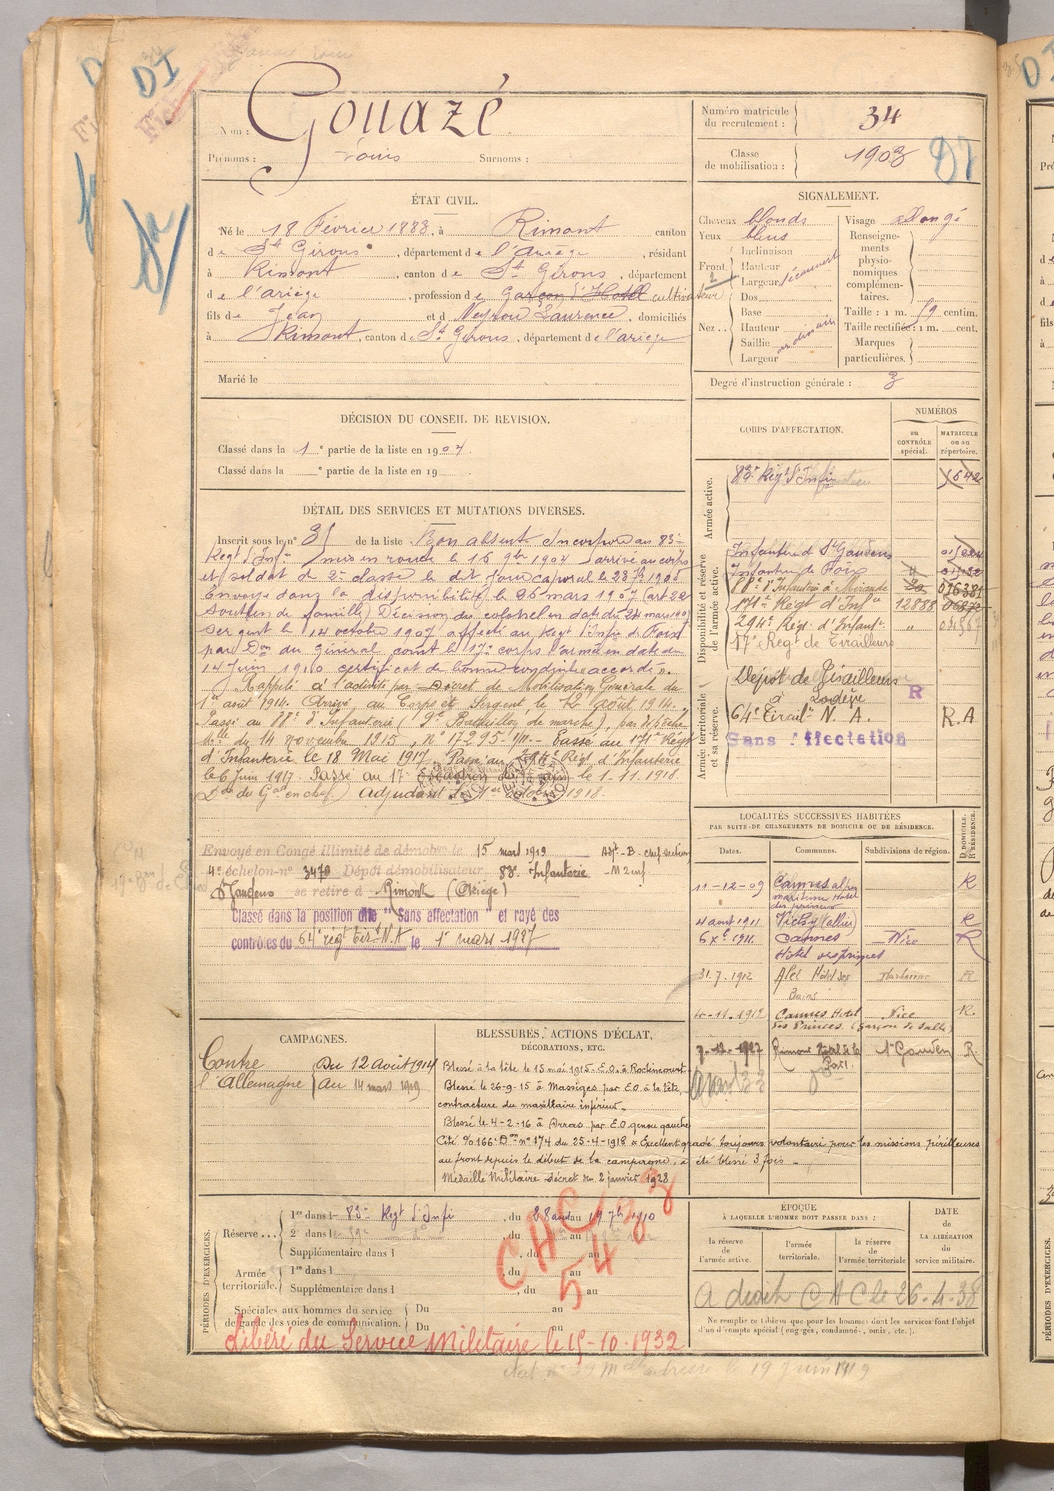 DI
Nom : Gouazé
Prénoms : Louis Surnoms :
Numéro matricule du recrutement : 34
Classe de mobilisation : 1903
ÉTAT CIVIL.
Né le 18 Février 1883, à Rimont canton
de St Girons, département de l'Ariège, résidant
à Rimont, canton de St Girons, département
de l'ariège, profession de Garçon d'Hotel cultivateur
fils de Jean et de Neyrou Laurence, domiciliés
à Rimont, canton de St Girons, département de l'ariège
Marié le
SIGNALEMENT.
Cheveux blonds
Yeux bleus
Front
Inclinaison
Hauteur
Largeur découvert
Dos
Nez
Base
Hauteur ordinaire
Saillie
Largeur
Visage allongé
Renseignements physionomiques complémentaires.
Taille : 1 m. 59 centim.
Taille rectifiée : 1 m. cent.
Marques particulières.
Degré d'instruction générale : 3
DÉCISION DU CONSEIL DE REVISION.
Classé dans la 1e partie de la liste en 1904.
Classé dans la e partie de la liste en 19
DÉTAIL DES SERVICES ET MUTATIONS DIVERSES.
Inscrit sous le n° 31 de la liste Bon absent Incorporé au 83e
Regt d'Infie mis en route le 16 9bre 1904 arrivé au corps
et soldat de 2e classe le dit jour caporal le 1905
Envoyé dans la disponibilité le 26 mars 1907 (art 22
soutien de famille) Décision du colonel en dat du 24 mars 1907
Sergent le 14 octobre 1907 affecté au Regt d'Infie de Foix
par Don du Général comt le 17e corps d'armée en date du
14 Juin 1910 certificat de bonne conduite accordé.
Rappelé à l'activité par Décret de Mobilisation Générale du
1er août 1914. Arrivé au Corps et Sergent le 12 août 1914.
Passé au 88e d'Infanterie (9e Bataillon de marche), par dépêche
Mlle du 14 novembre 1915, N° 17295. Passé au 171e Régt
d'Infanterie le 18 Mai 1917. Passé au 294e Régt d'Infanterie
le 6 juin 1917. Passé au 17e le 1.11.1918.
Don du Gal en chef) adjudant le 1er octobre 1918.
Envoyé en Congé illimité de démobon le 15 mars 1919 Adjt-B-chef section
4e échelon-n° 3470 Dépôt démobilisateur 88e Infanterie
St Gaudens se retire à Rimont (Ariège)
Classé dans la position dite "Sans affectation" et rayé des
contrôles du 64e régt tirs N.A le 1er mars 1927
CORPS D'AFFECTATION.
NUMÉROS
au CONTRÔLE spécial.
MATRICULE ou au répertoire.
Armée active.
83e Régt d'Infie
Disponibilité et réserve de l'armée active.
Infanterie d St Gaudens
Infanterie de Foix
88e d'Infanterie à Mirande
171e Régt d'Infie 12888
294e Régt d'Infant.
17e Reg. de Tirailleurs
Armée territoriale et sa réserve.
Dépôt de Tirailleurs R
à Lodève
64e Tirailrs N. A. R.A
Sans Affectation
LOCALITÉS SUCCESSIVES HABITÉES
PAR SUITE DE CHANGEMENTS DE DOMICILE OU DE RÉSIDENCE.
Dates. Communes. Subdivisions de région. D. DOMICILE. R. RÉSIDENCE.
11-12-09 Cannes alpes R
maritimes Hotel
des princes
4 août 1911 Vichy (allier) R
6 Xbre 1911. Cannes Nice R
Hotel des princes
31.7.1912 Alet Hôtel des Narbonne R
Bains
10-11-1912 Cannes Hotel Nice R.
des Princes (garçon de salle)
7-12-1927 Rimont St Gaudens R
CAMPAGNES.
Contre l'Allemagne
Du 12 Août 1914
Au 14 mars 1919
BLESSURES, ACTIONS D'ÉCLAT,
DÉCORATIONS, ETC.
Blessé à la tête le 15 mai 1915-E.O. à Roclincourt
Blessé le 26-9-15 à Massiges par E.O. à la tête,
contracture du maxillaire inférieur.
Blessé le 4-2-16 à Arras par E.O. genou gauche
Cité O/166e Don n° 174 du 25-4-1918 « Excellent gradé toujours volontaire pour les missions périlleuses
au front depuis le début de la campagne, a été blessé 3 fois »
Médaille Militaire décret du 2 janvier 1928
PÉRIODES D'EXERCICES.
Réserve...
1re dans l 83e Regt d'Infie, du 28 août au 19 7bre 1910
2e dans l, du au
Supplémentaire dans l, du au
Armée territoriale.
1re dans l, du au
Supplémentaire dans l, du au
Spéciales aux hommes du service de garde des voies de communication.
Du au
Du au
CAC
54
Libéré du Service Militaire le 15-10-1932
ÉPOQUE
À LAQUELLE L'HOMME DOIT PASSER DANS :
la réserve de l'armée active.
l'armée territoriale.
la réserve de l'armée territoriale
DATE DE LA LIBÉRATION du service militaire.
A CAC le 26.4.38
Ne remplir ce tableau que pour les hommes dont les services font l'objet
d'un décompte spécial (engagés, condamnés, omis, etc.).
le 19 juin 1919